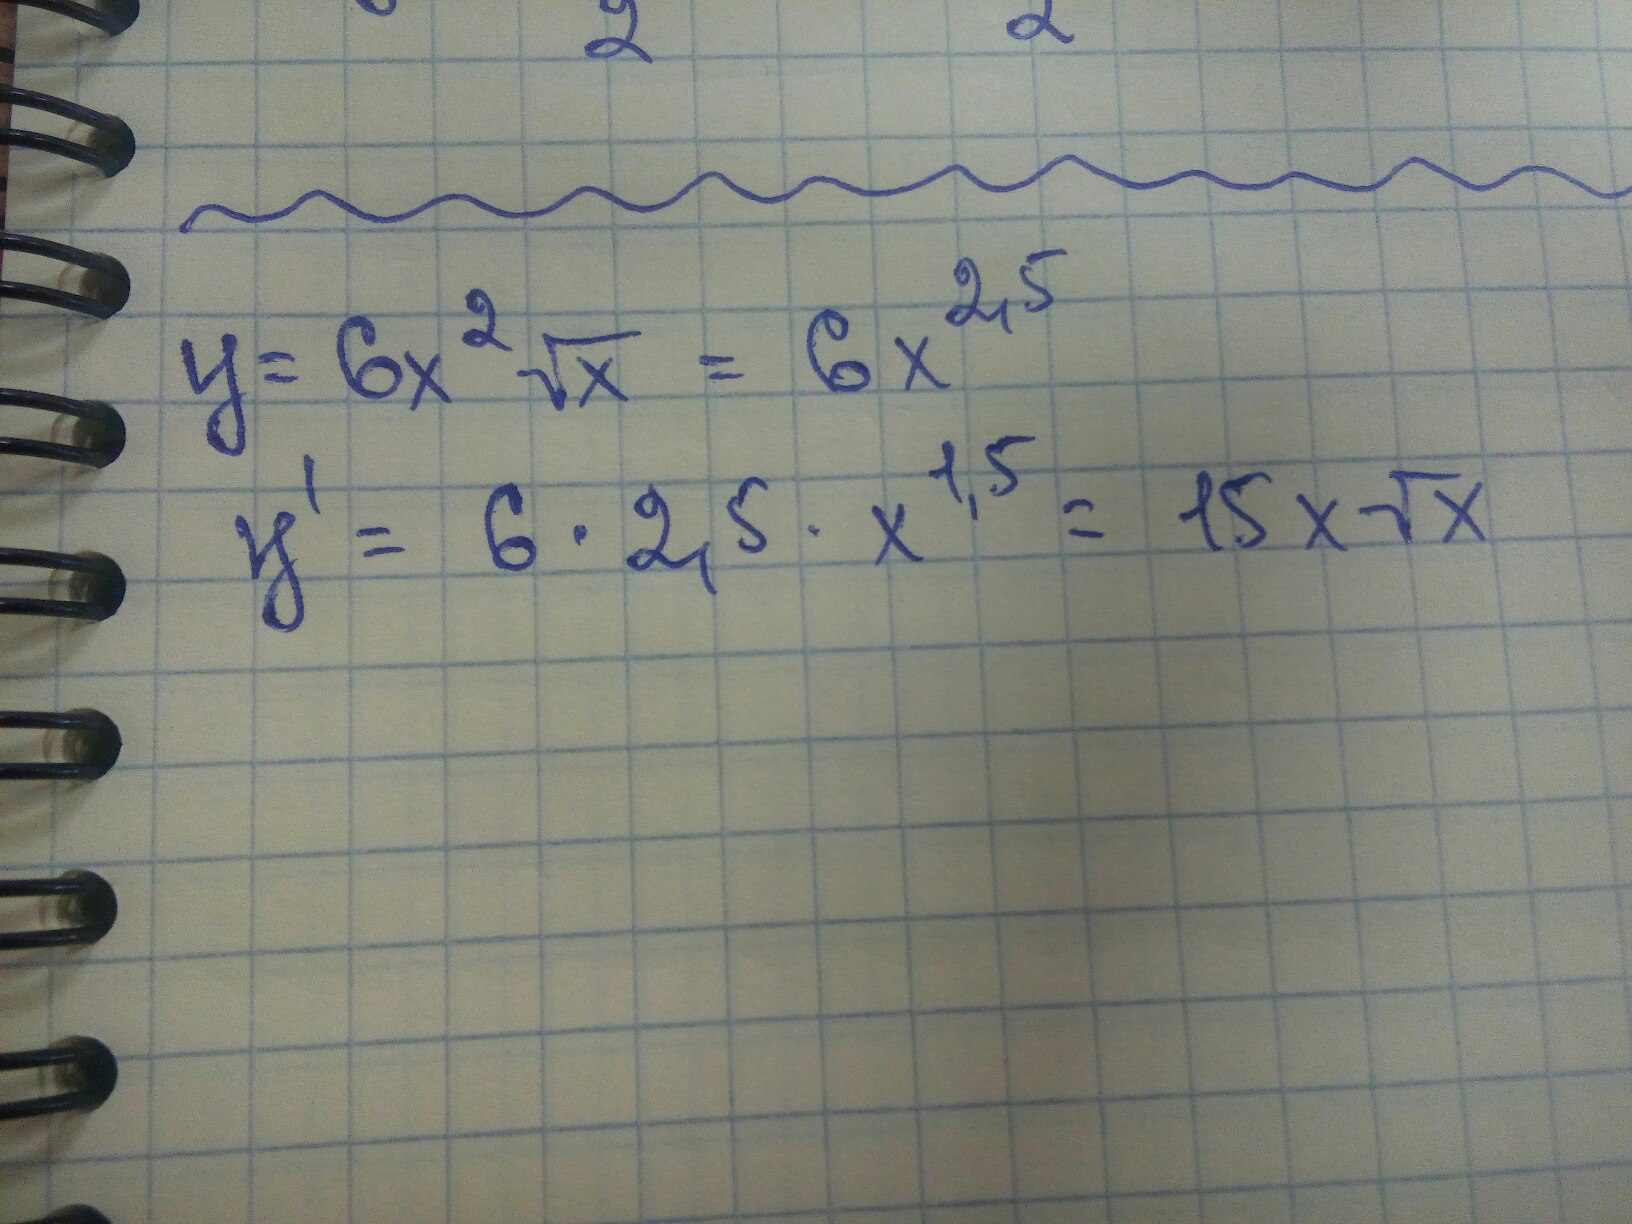 2 2
y = 6x²√x = 6x^2,5
y' = 6 · 2,5 · x^1,5 = 15x√x